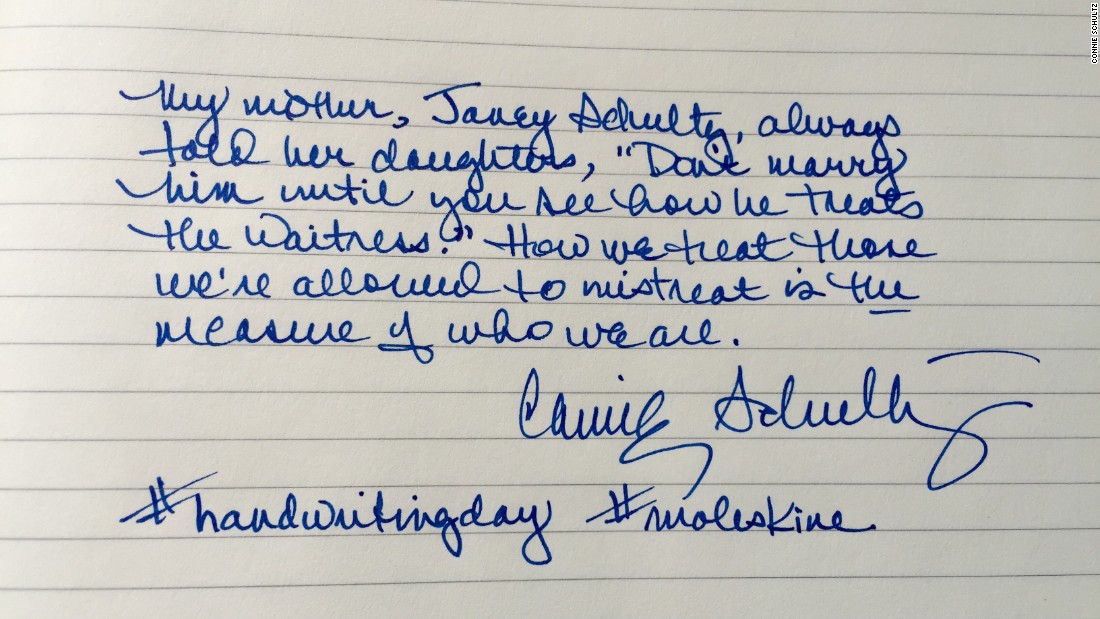 My mother, Janey Schultz, always
told her daughters, "Don't marry
him until you see how he treats
the waitress." How we treat those
we're allowed to mistreat is the
measure of who we are.
Connie Schultz
#handwritingday #moleskine
CONNIE SCHULTZ